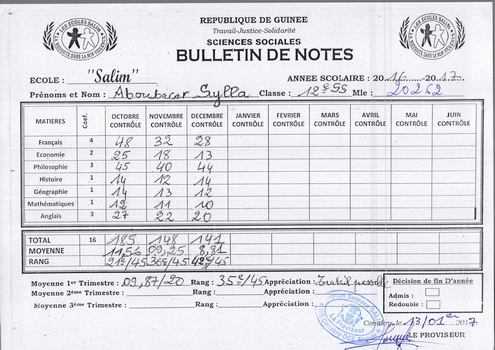 REPUBLIQUE DE GUINEE
Travail-Justice-Solidarité
SCIENCES SOCIALES
BULLETIN DE NOTES
ECOLE : "Salim" ANNEE SCOLAIRE : 2016......2017
Prénoms et Nom : Aboubacar Sylla Classe : 12e SS Mle : 20262
MATIERES Coef. OCTOBRE CONTRÔLE NOVEMBRE CONTRÔLE DECEMBRE CONTRÔLE JANVIER CONTRÔLE FEVRIER CONTRÔLE MARS CONTRÔLE AVRIL CONTRÔLE MAI CONTRÔLE JUIN CONTRÔLE
Français 4 48 32 28
Economie 2 25 18 13
Philosophie 3 45 40 44
Histoire 1 14 12 14
Géographie 1 14 13 12
Mathématiques 1 12 11 10
Anglais 3 27 22 20
TOTAL 16 185 148 141
MOYENNE 11,56 09,25 8,81
RANG 21e/45 36e/45 42e/45
Moyenne 1er Trimestre : 09,87/20 Rang : 35e/45 Appréciation : Travail passable
Moyenne 2ème Trimestre : Rang : Appréciation :
Moyenne 3ème Trimestre : Rang : Appréciation :
Décision de fin D'année
Admis :
Redouble :
Conakry, le 13/01 2017
LE PROVISEUR
Le Proviseur